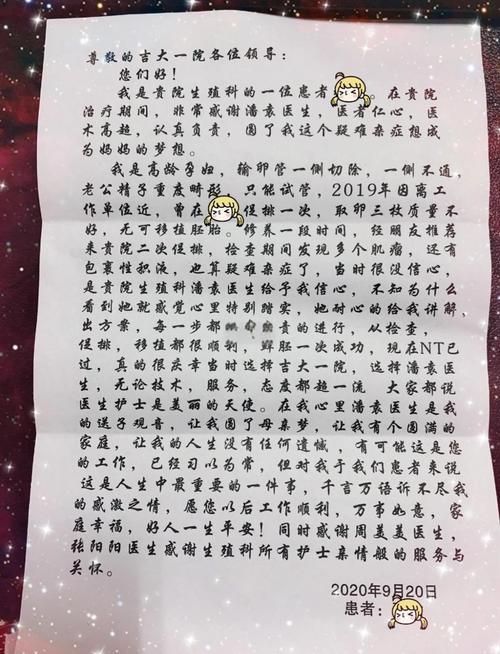 尊敬的吉大一院各位领导：
您们好！
我是贵院生殖科的一位患者。在贵院
治疗期间，非常感谢潘袁医生，医者仁心，医
术高超，认真负责，圆了我这个疑难杂症想成
为妈妈的梦想。
我是高龄孕妇，输卵管一侧切除，一侧不通，
老公精子重度畸形，只能试管，2019年因离工
作单位近，曾在促排一次，取卵三枚质量不
好，无可移植胚胎。修养一段时间，经朋友推荐
来贵院二次促排，检查期间发现多个肌瘤，还有
包裹性积液，也算疑难杂症了，当时很没信心，
是贵院生殖科潘袁医生给予我信心，不知为什么
看到她就感觉心里特别踏实，她耐心的给我讲解，
出方案，每一步都负责的进行，从检查，
促排，移植都很顺利，鲜胚一次成功，现在NT已
过，真的很庆幸当时选择吉大一院，选择潘袁医
生，无论技术，服务，态度都超一流，大家都说
医生护士是美丽的天使。在我心里潘袁医生是我
的送子观音，让我圆了母亲梦，让我有个圆满的
家庭，让我的人生没有任何遗憾，有可能这是您
的工作，已经习以为常，但对我于我们患者来说
这是人生中最重要的一件事，千言万语诉不尽我
的感激之情，愿您以后工作顺利，万事如意，家
庭幸福，好人一生平安！同时感谢周美美医生，
张阳阳医生感谢生殖科所有护士亲情般的服务与
关怀。
2020年9月20日
患者：